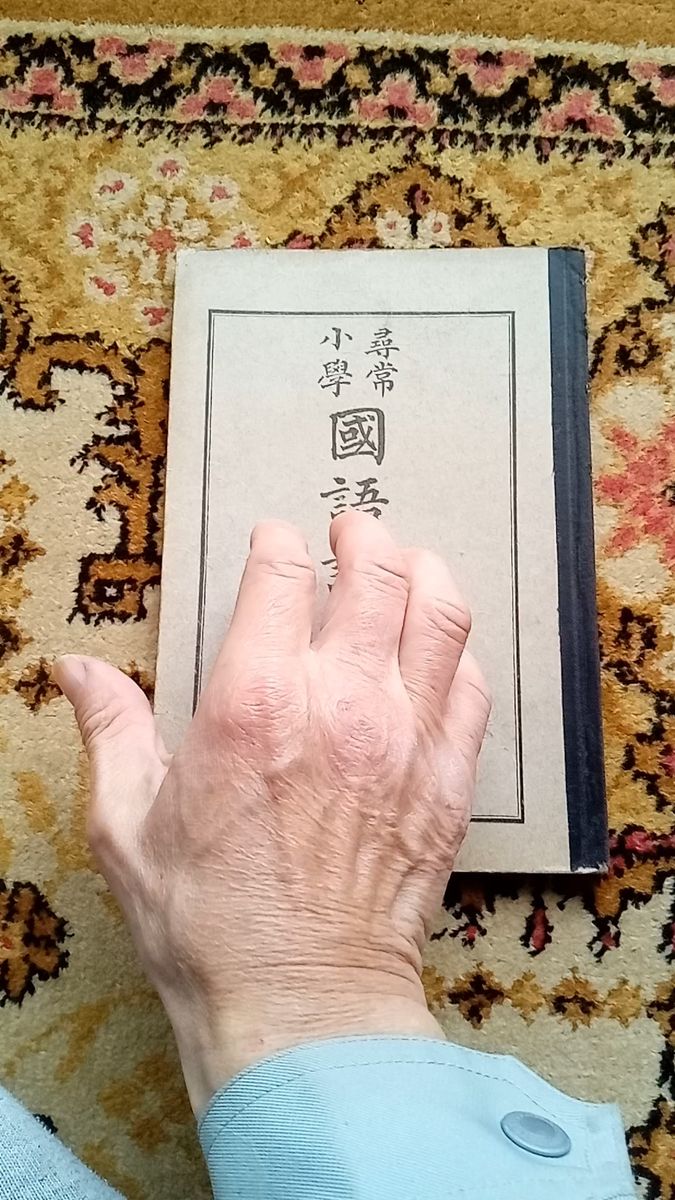 尋常
小學
國語